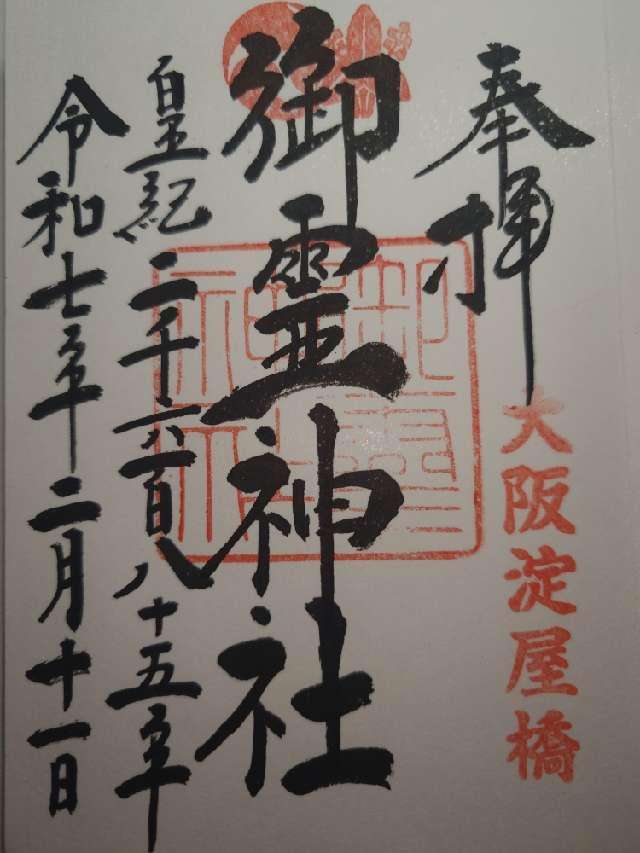 奉拝
大阪淀屋橋
御霊神社
皇紀二千六百八十五年
令和七年二月十一日